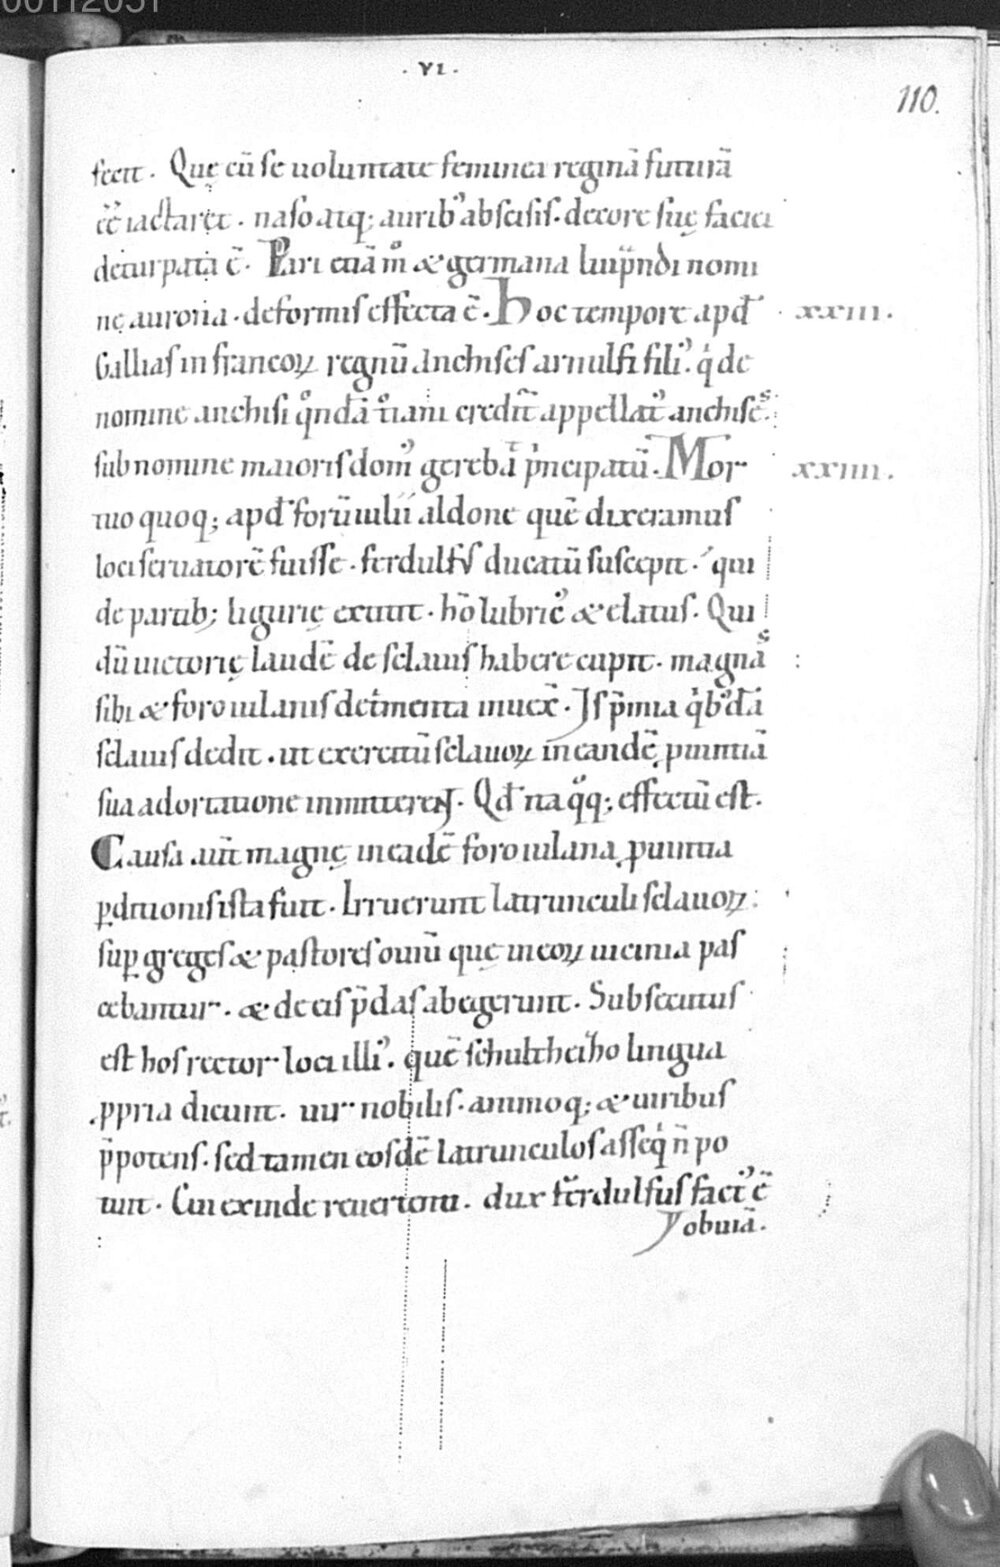 00112051
· VI ·
110.
fecit · Quę cū se uoluntate feminea reginā futurā
ēē iactaręt · naso atq; aurib' abscisis · decore suę faciei
deturpata ē · Pari etiā m° & germana luip̄ndi nomi
nę auroria · deformis effecta ē · Hoc tempore apđ · xxiii ·
Gallias in francoꝝ regnū Anchises arnulfi fili' · q̍ de
nomine anchisi qͦndā troiani creditͬ appellat' anchises ·
sub nomine maioris dom' gerebat p̍ncipatū · Mor · xxiiii ·
tuo quoq; apđ forū iulii aldone quē dixeramus
loci seruatorē fuisse · ferdulfus ducatū suscepit · qui
de partib; ligurię extitit · hō lubric' & elatus · Qui
dū uictorię laudē de sclauis habere cupit · magnas
sibi & foro iulanis det̍menta inuex̄ · Is p̄mia q̍b'dā
sclauis dedit · ut exercitū sclauoꝝ in eandē ꝓuintiā
sua adortatione inmitterent · Qđ ita qͦq; effectū est ·
Causa aūt magnę in eadē foroiulana ꝓuintia
ꝑditionis ista fuit · Irruerunt latrunculi sclauoꝝ
suꝑ greges & pastores ouiū quę in eoꝝ uicinia pas
cebantur · & de eis p̄das abegerunt · Subsecutus
est hos rector loci illi' · quē schultheiho lingua
ꝓpria dicunt · uir nobilis · animoq; & uiribus
p̄potens · sed tamen eosdē latrunculos asseq̍ n̄ po
tuit · Cui exinde reuertenti · dux ferdulfus fact' ē
obuiā ·